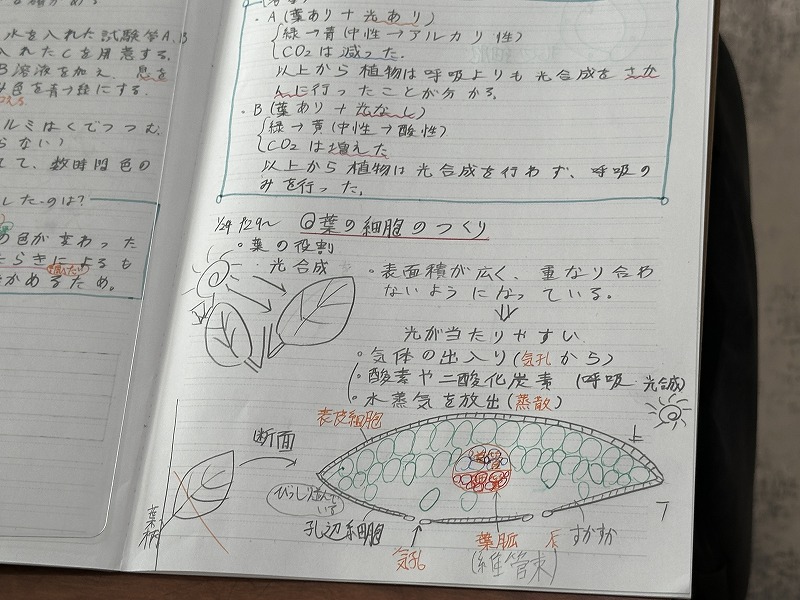 水を入れた試験管A.B
入れたCを用意する。
B溶液を加え、息を
み色を青→緑にする。
ルミはくでつつむ。
らない)
て、数時間色の
したのは?
の色が変わった
たらきによるも
があるため。
・A(葉あり+光あり)
緑→青(中性→アルカリ性)
CO2は減った。
以上から植物は呼吸よりも光合成をさか
んに行ったことが分かる。
・B(葉あり+光なし)
緑→黄(中性→酸性)
CO2は増えた
以上から植物は光合成を行わず、呼吸の
みを行った。
1/24 P29~ ◎葉の細胞のつくり
・葉の役割
・光合成
・表面積が広く、重なり合わ
ないようになっている。
⇓
光が当たりやすい
・気体の出入り(気孔から)
・酸素や二酸化炭素(呼吸 光合成)
・水蒸気を放出(蒸散)
表皮細胞
断面
上
びっしり並んでいる
葉柄
孔辺細胞
気孔
葉脈
(維管束)
すかすか
下